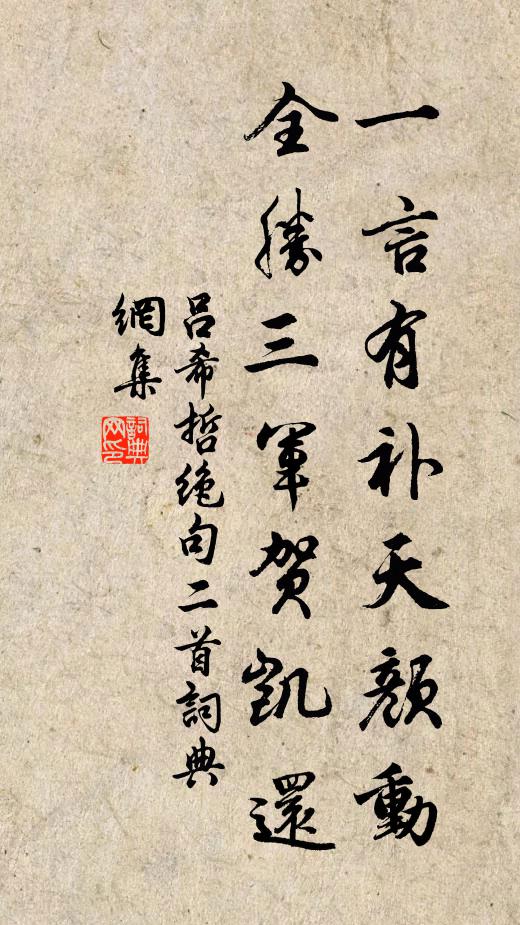 一言有补天颜動
全勝三軍贺凯還
吕希哲绝句二首詞典
網集
詞典
网印